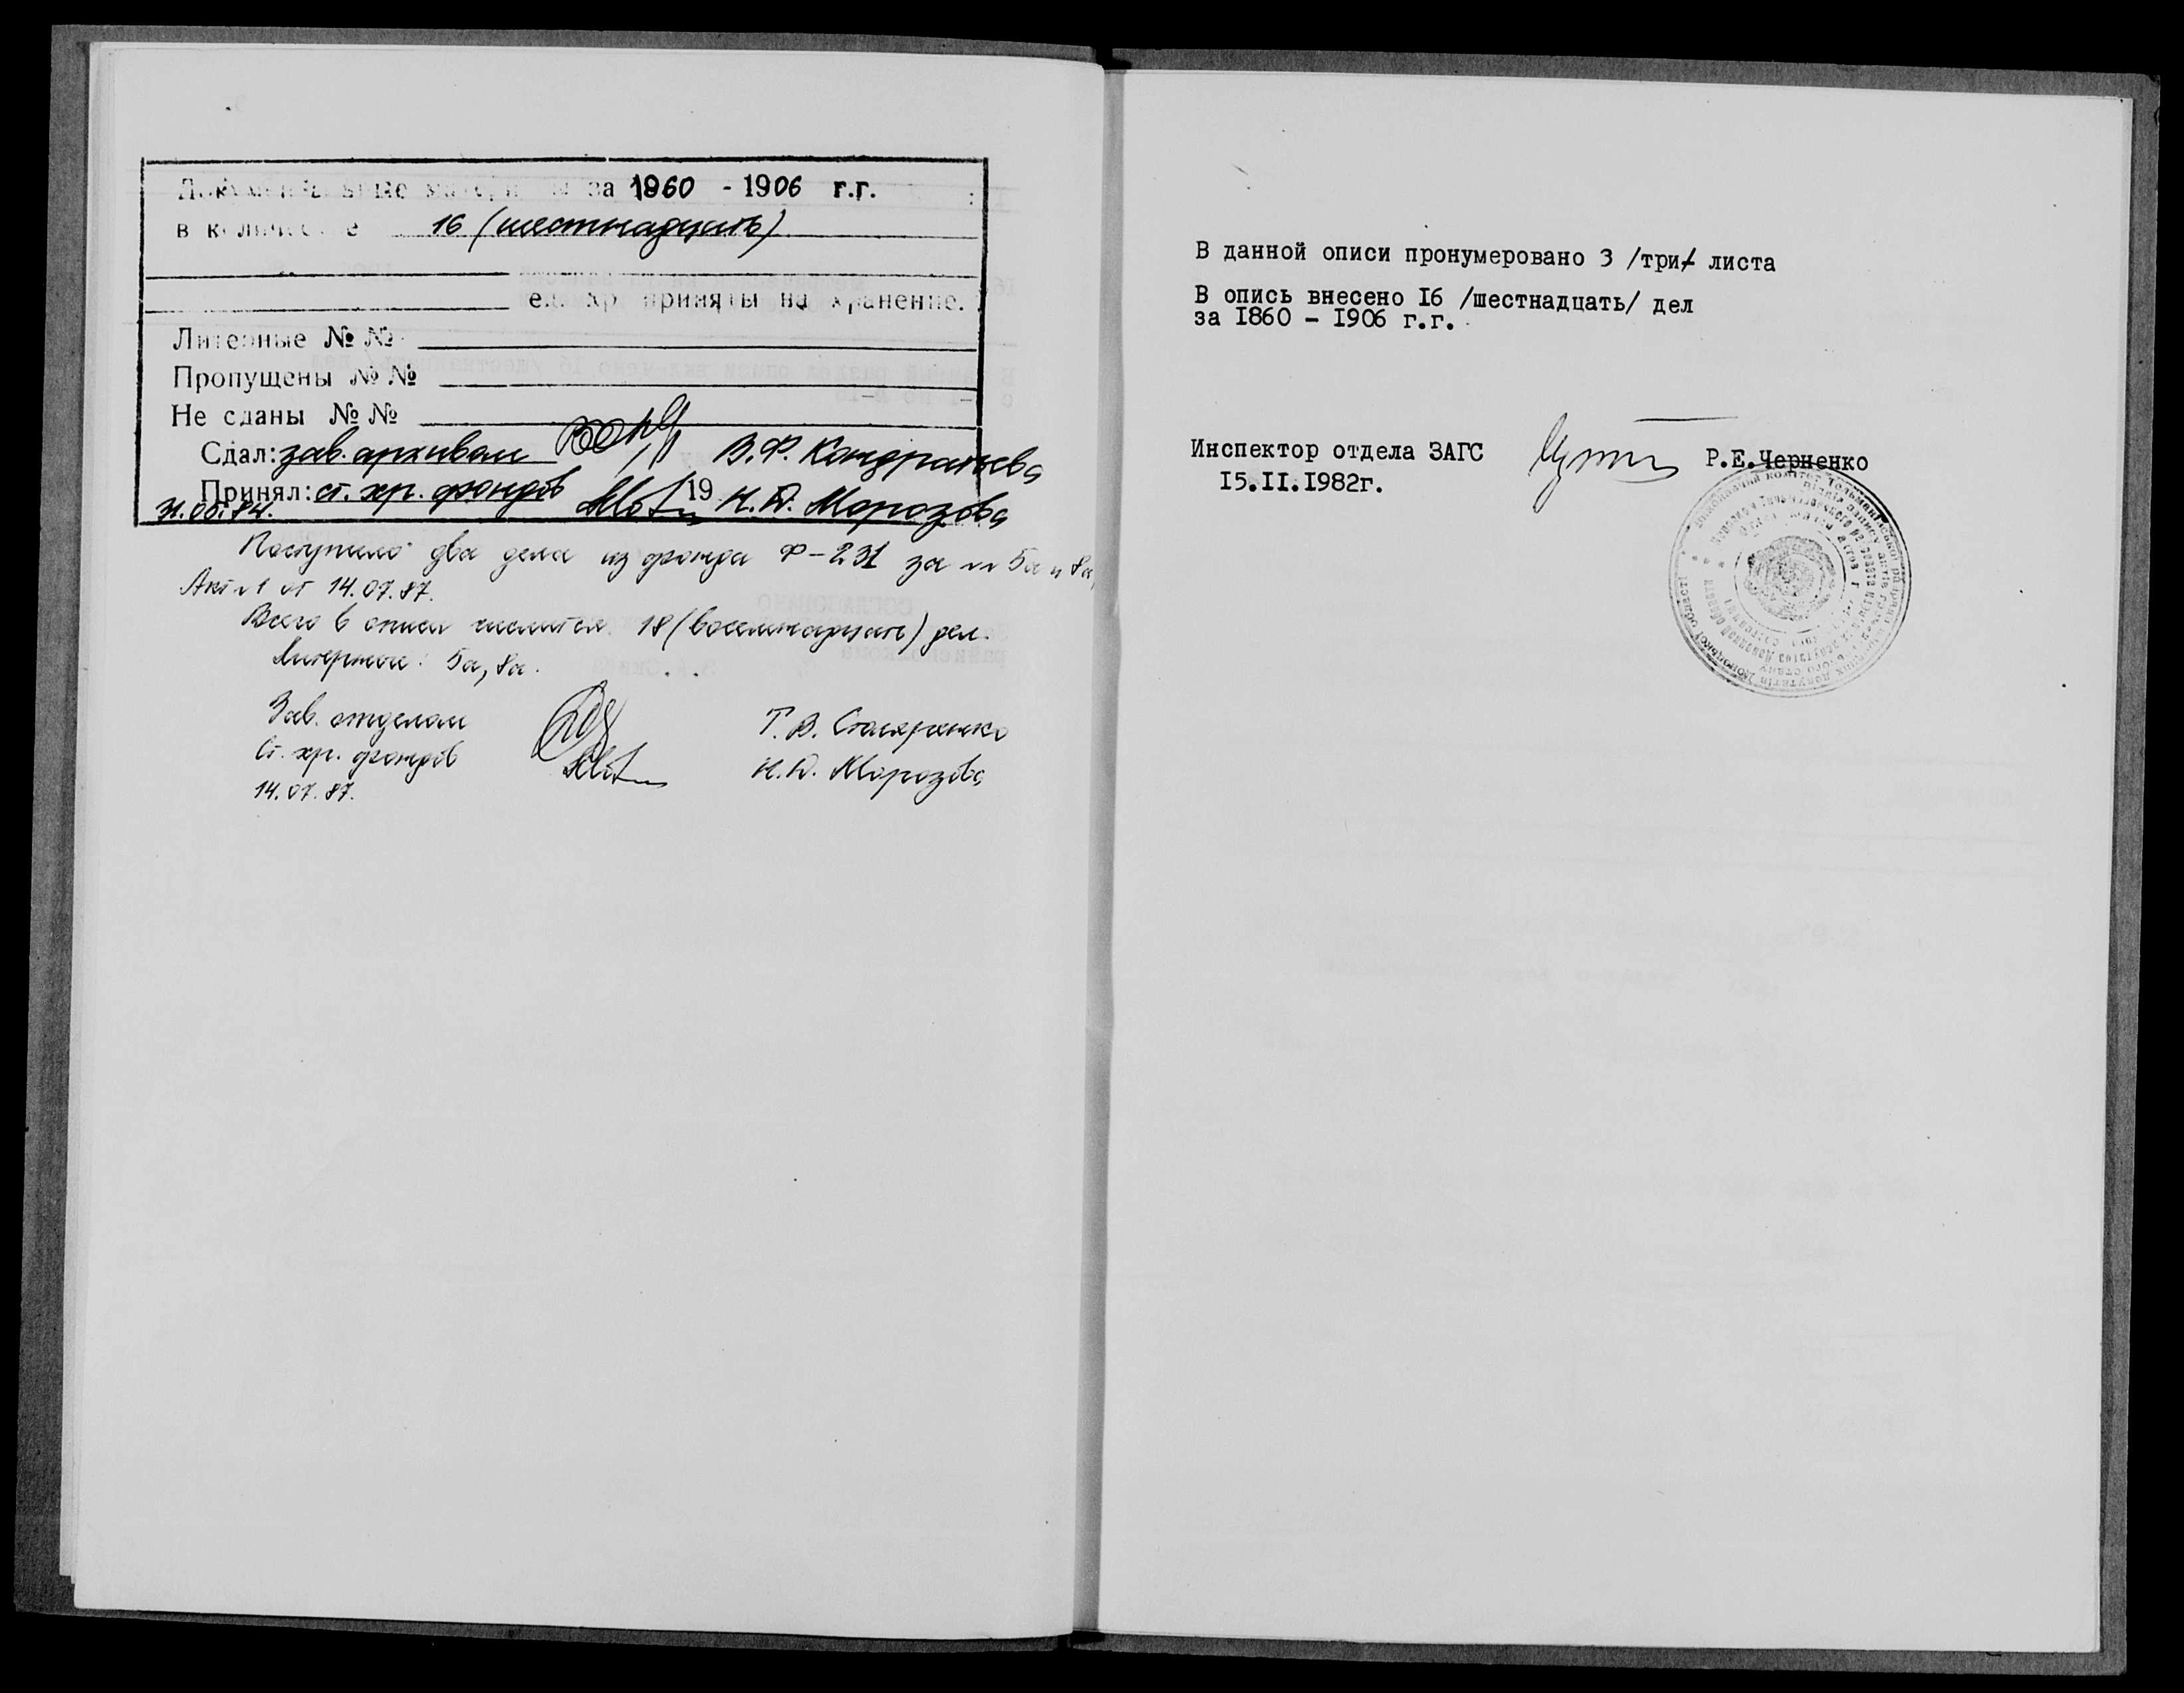 Документальные материалы за 1860 - 1906 г.г.
в количестве 16 (шестнадцать)
ед. хр. приняты на хранение.
Литерные № №
Пропущены № №
Не сданы № №
Сдал: зав. архивом В.Ф. Кондратьева
Принял: ст. хр. фондов 19 Н.Д. Морозова
31.08.84.
Поступило два дела из фонда Ф-231 за №№ 5а и 8а,
Акт №1 от 14.07.87.
Всего в описи числится 18 (восемнадцать) дел.
Литерные: 5а, 8а.
Зав. отделом Т.В. Столяренко
Ст. хр. фондов Н.Д. Морозова
14.07.87.
В данной описи пронумеровано 3 /три/ листа
В опись внесено I6 /шестнадцать/ дел
за I860 - I906 г.г.
Инспектор отдела ЗАГС Р.Е.Черненко
I5.II.I982г.